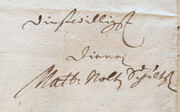 Dienstwilligst
Diener
Math: Nolt